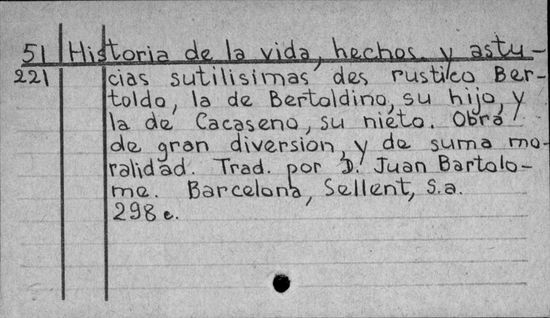 51 Historia de la vida, hechos y astu-
221 cias sutilisimas des rustico Ber-
toldo, la de Bertoldino, su hijo, y
la de Cacaseno, su nieto. Obra
de gran diversion, y de suma mo-
ralidad. Trad. por D. Juan Bartolo-
me. Barcelona, Sellent, s.a.
298 e.